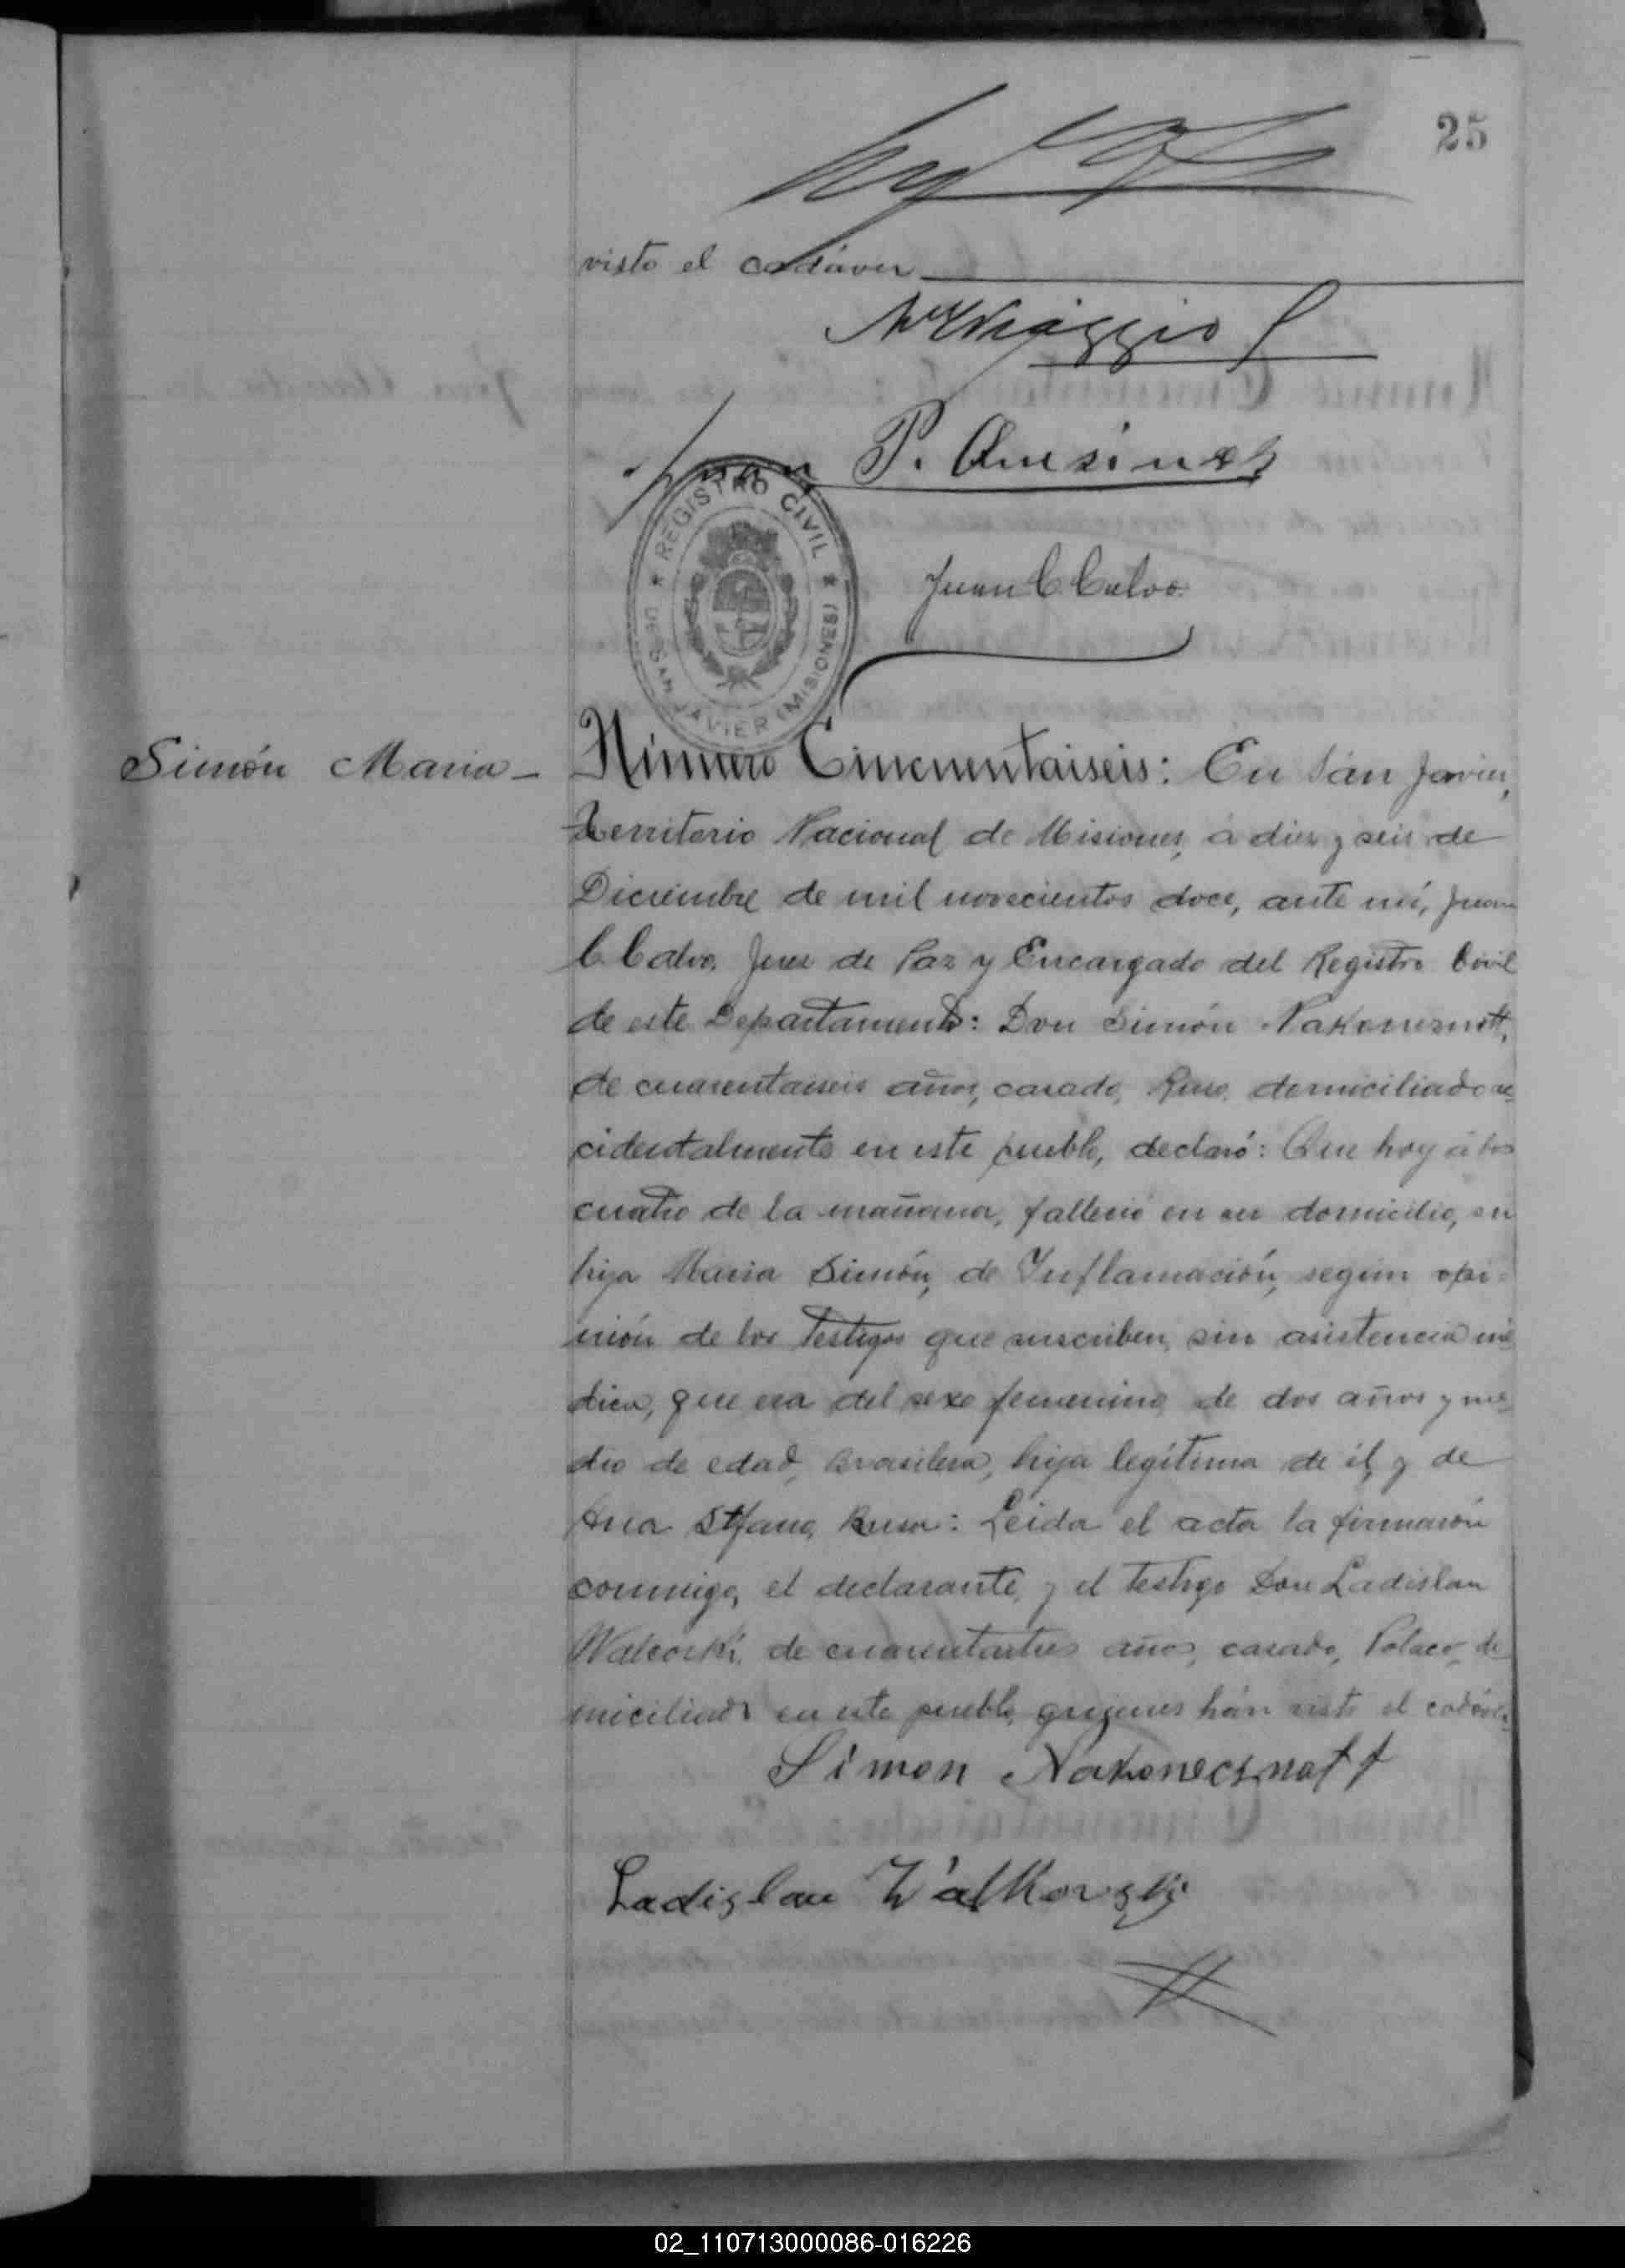 25
visto el cadáver
P. Quesinez
REGISTRO CIVIL
DE SAN JAVIER (MISIONES)
Juan C. Calvo
Simón Maria - Número Cincuentaiseis: En San Javier,
Territorio Nacional de Misiones, á diez y seis de
Diciembre de mil novecientos doce, ante mí, Juan
C. Calvo, Juez de Paz y Encargado del Registro Civil
de este Departamento: Don Simón
de cuarentaiseis años, casado, Ruso, domiciliado ac-
cidentalmente en este pueblo, declaró: Que hoy á las
cuatro de la mañana, falleció en su domicilio, su
hija Maria Simón, de Inflamación, según opi-
nión de los testigos que suscriben, sin asistencia mé-
dica, que era del sexo femenino, de dos años y me-
dio de edad, Brasilera, hija legítima de él, y de
Ana Stfano, Rusa: Leida el acta la firmarón
conmigo, el declarante, y el testigo Don Ladislau
Walcoski, de cuarentaitres años, casado, Polaco, do-
miciliado en este pueblo, quienes hán visto el cadáver.
Simon Nakonecsnoff
Ladislau Walkovski
02_110713000086-016226